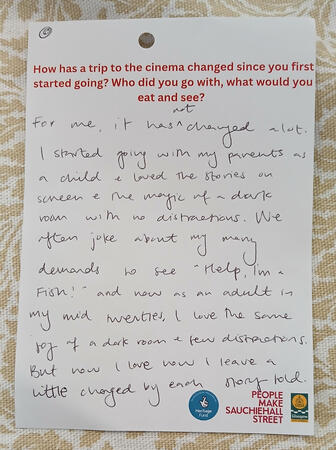 How has a trip to the cinema changed since you first
started going? Who did you go with, what would you
eat and see?
not
For me, it has ^ changed a lot.
I started going with my parents as
a child & loved the stories on
screen & the magic of a dark
room with no distractions. We
often joke about my many
demands to see "Help, I'm a
Fish!" and now as an adult in
my mid twenties, I love the same
joy of a dark room & few distractions.
But now I love how I leave a
little changed by each story told.
Heritage
Fund
PEOPLE
MAKE
SAUCHIEHALL
STREET